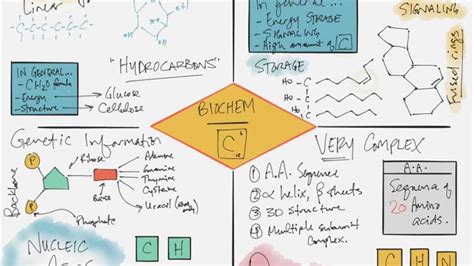 Linear
In General...
- CH2O formula
- Energy
- Structure
Glucose
Cellulose
"HYDROCARBONS"
In general...
- Energy STORAGE
- SIGNALING
- High amount of C
SIGNALING
STORAGE
HO - C
HO - C
HO - C
Fused rings
BIOCHEM
C
Genetic Information
Backbone
P
P
Ribose
Phosphate
Adenine
Guanine
Thymine
Cysteine
Uracil
NUCLEIC
C H
VERY COMPLEX
① A.A. Sequence
② α helix, β sheets
③ 3D structure
④ Multiple subunit
Complex.
A.A.
Sequence of
20 Amino
acids.
C H N